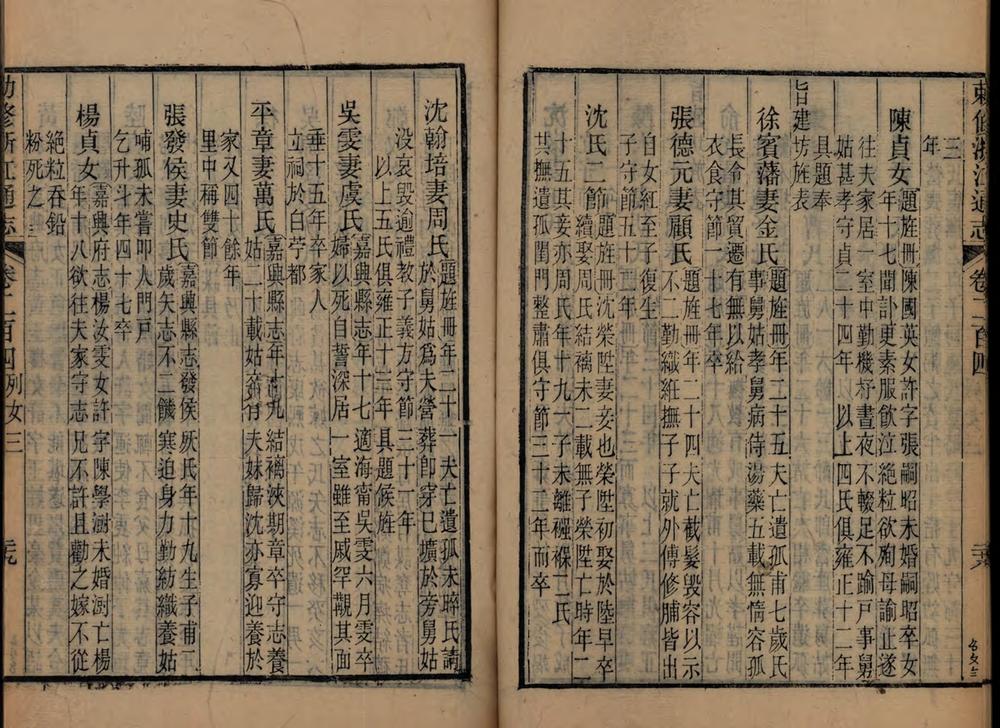 敕修浙江通志 卷二百四
三
年
陳貞女 題旌冊陳國英女許字張嗣昭未婚嗣昭卒女
年十七聞訃更素服飲泣絕粒欲殉母諭止遂
往夫家居一室中勤機杼晝夜不輟足不踰戶事舅
姑甚孝守貞二十四年 以上四氏俱雍正十二年
具題奉
旨建坊旌表
徐賓藩妻金氏 題旌冊年二十五夫亡遺孤甫七歲氏
事舅姑孝舅病侍湯藥五載無惰容孤
長命其貿遷有無以給
衣食守節一十七年卒
張德元妻顧氏 題旌冊年二十四夫亡截髮毀容以示
不二勤織紝撫子子就外傅修脯皆出
自女紅至子復生
子守節五十二年
沈氏二節 題旌冊沈榮陞妻妾也榮陞初娶於陸早卒
續娶周氏結褵未二載無子榮陞亡時年二
十五其妾亦周氏年十九一子未離襁褓二氏
共撫遺孤閨門整肅俱守節三十三年而卒
沈翰培妻周氏 題旌冊年二十一夫亡遺孤未晬氏請
於舅姑爲夫營葬卽穿已壙於旁舅姑
沒哀毀逾禮教子義方守節三十一年
以上五氏俱雍正十三年具題候旌
吳雯妻虞氏 嘉興縣志年十七適海甯吳雯六月雯卒
婦以死自誓深居一室雖至戚罕覿其面
垂十五年卒家人
立祠於白苧都
平章妻萬氏 嘉興縣志年十九結褵浹期章卒守志養
姑二十載姑旣葬夫妹歸沈亦寡迎養於
家又四十餘年
里中稱雙節
張發侯妻史氏 嘉興縣志發侯歿氏年十九生子甫二
歲矢志不二饑寒迫身力勤紡織養姑
哺孤未嘗叩人門戶
乞升斗年四十七卒
楊貞女 嘉興府志楊汝雯女許字陳學澍未婚澍亡楊
年十八欲往夫家守志兄不許且勸之嫁不從
絕粒吞鉛
粉死之
敕修浙江通志 卷二百四 列女三